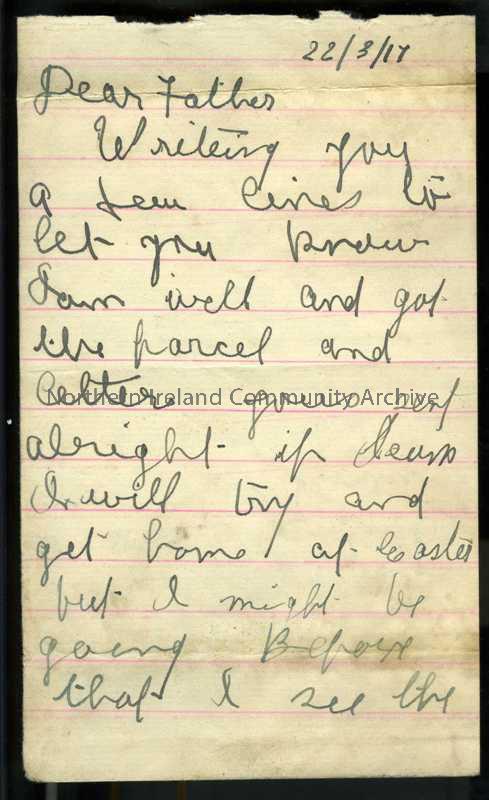 22/3/17
Dear Father
Writing you
a few lines to
let you know
I am well and got
the parcel and
letter yous sent
Northern Ireland Community Archive
alright if I can
I will try and
get home at Easter
but I might be
going Before
that I see the